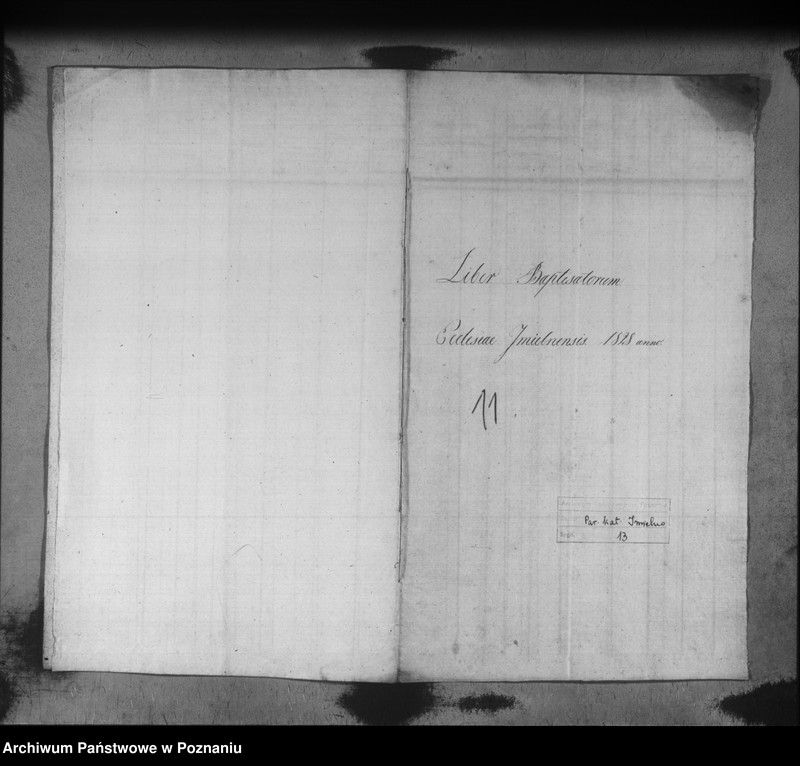 Liber Baptisatorum
Ecclesiae Imielnensis 1828 anno.
11.
Par. kat Imielno
13
Archiwum Państwowe w Poznaniu